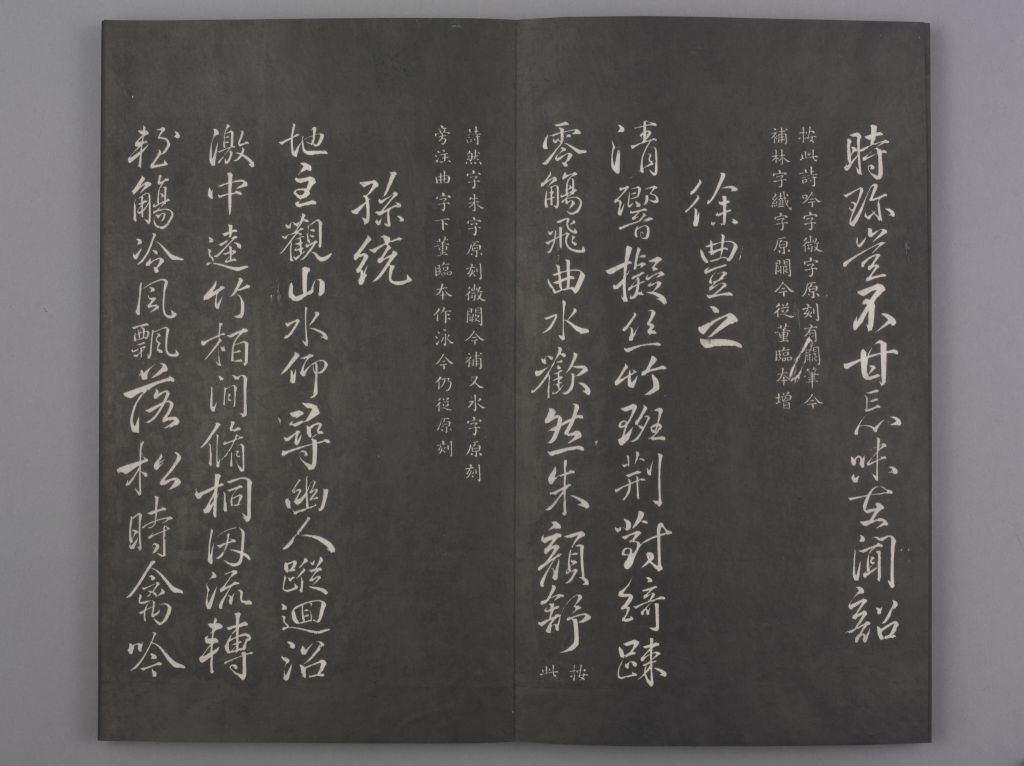 時珎豈不甘忘味在聞韶
按此詩吟字微字原刻有闕筆今
補林字纖字原闕今從董臨本增
徐豐之
清響擬絲竹班荆對綺踈
零觴飛曲水歡然朱顔舒
按此
詩然字朱字原刻微闕今補又水字原刻
旁注曲字下董臨本作泳今仍從原刻
孫統
地主觀山水仰尋幽人蹤迴沼
激中逵竹栢澗脩桐因流轉
輕觴冷風飄落松時禽吟